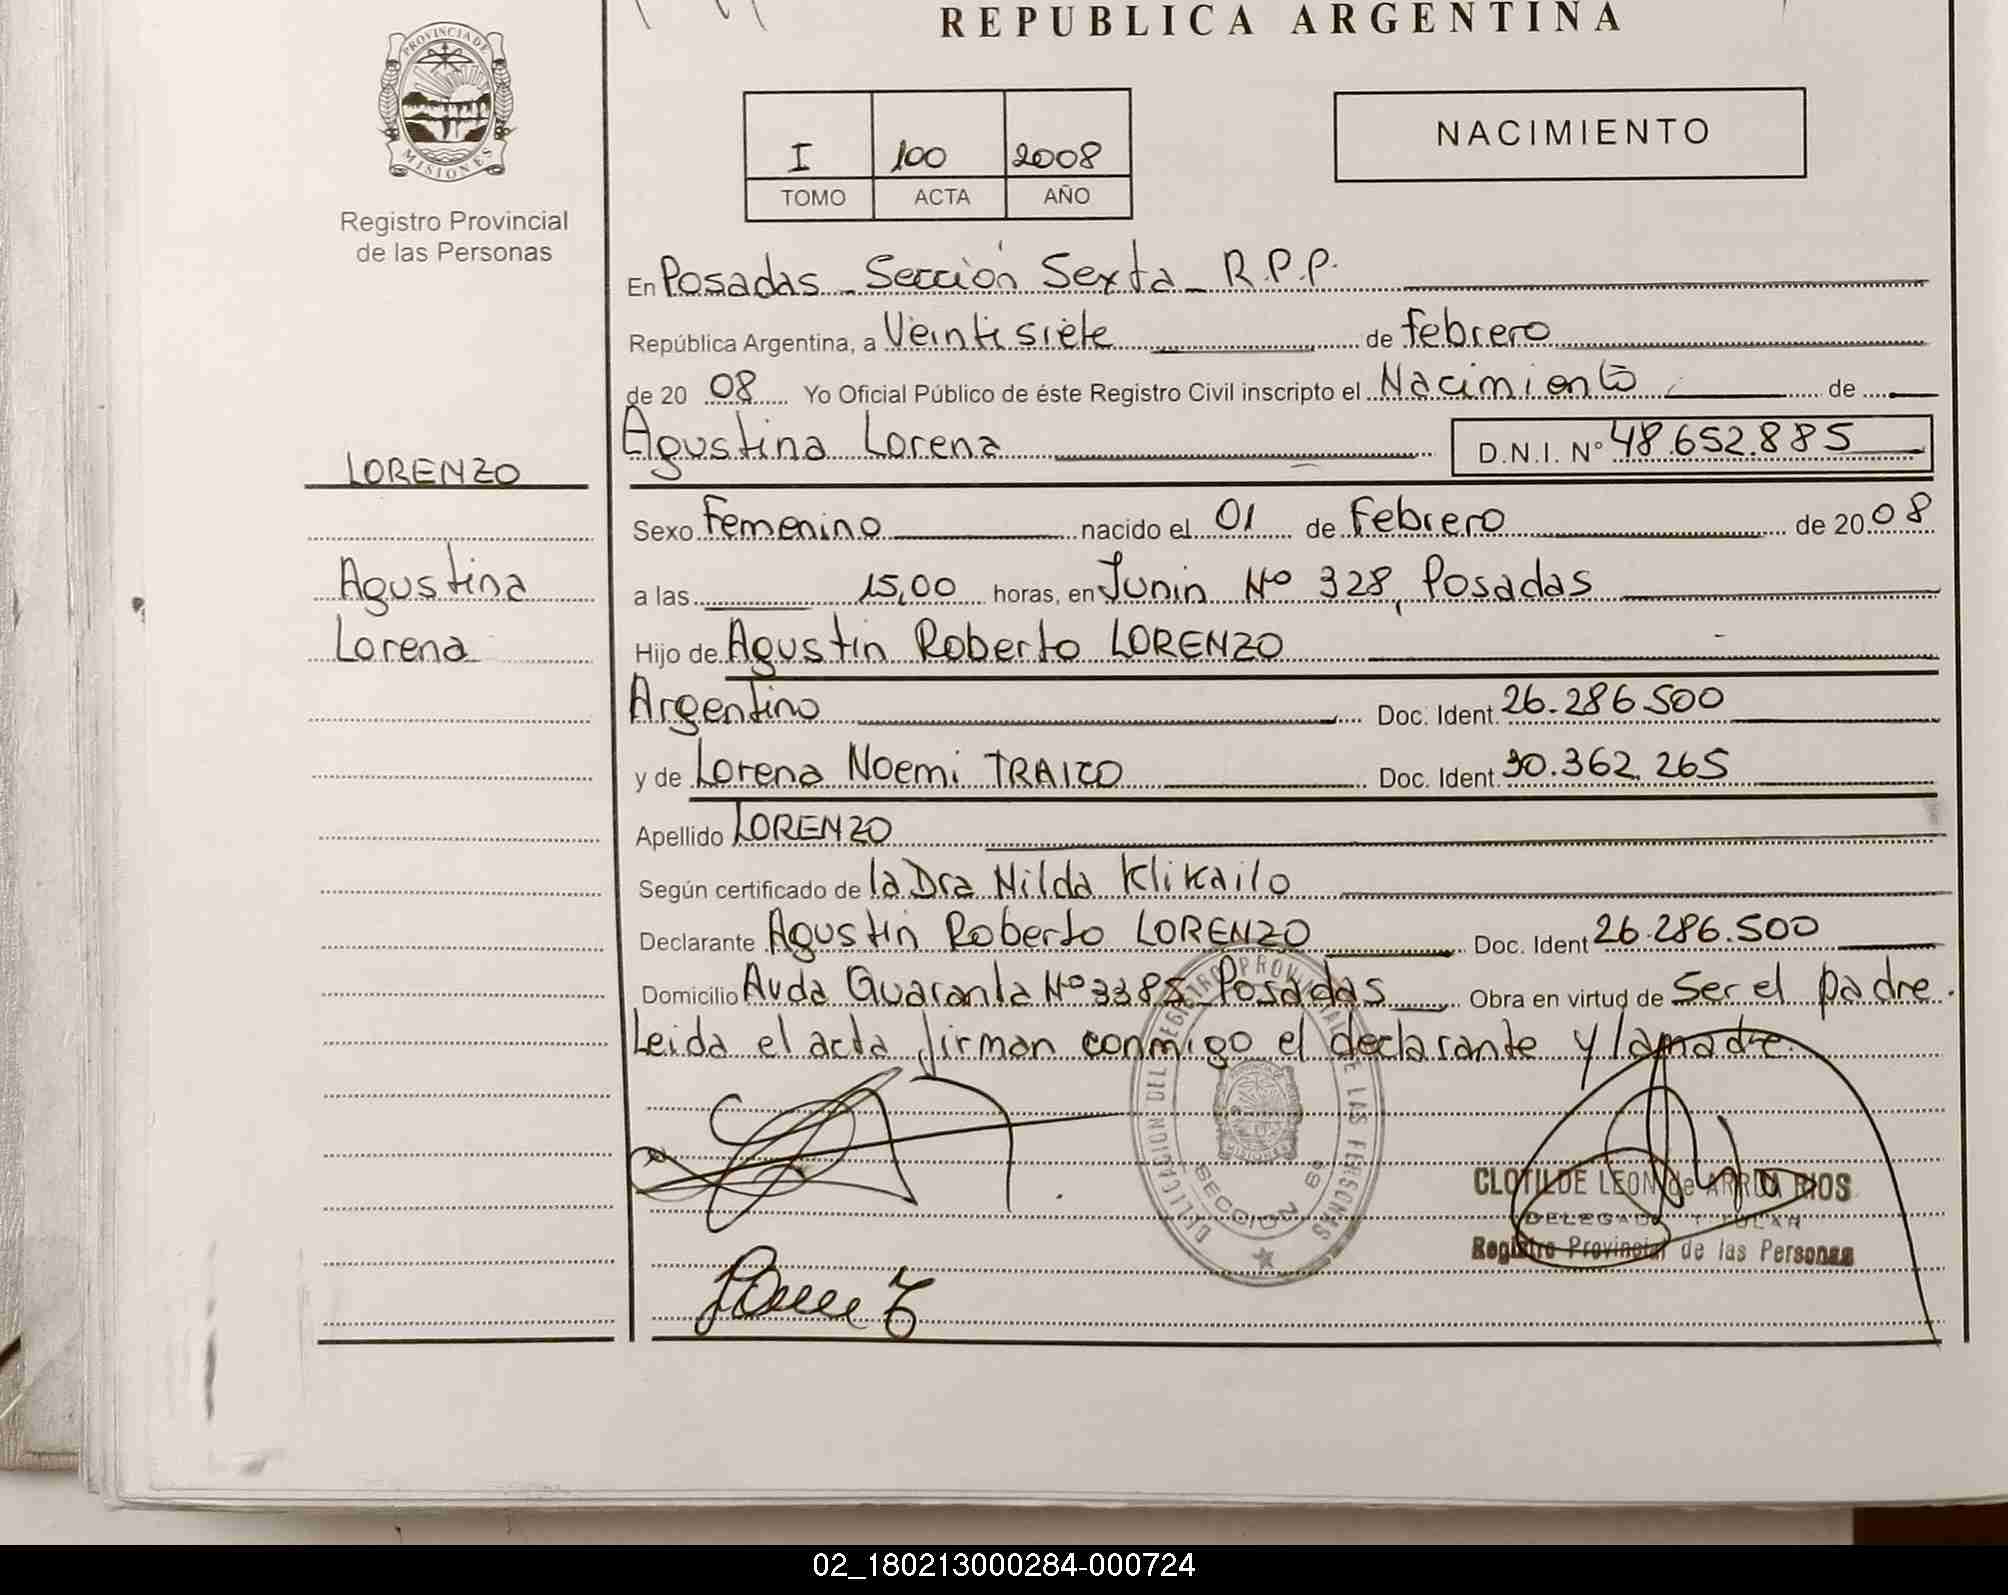 REPUBLICA ARGENTINA
PROVINCIA DE
MISIONES
Registro Provincial
de las Personas
I 100 2008
TOMO ACTA AÑO
NACIMIENTO
En Posadas - Sección Sexta - R.P.P.
República Argentina, a Veintisiete de febrero
de 20 08 Yo Oficial Público de éste Registro Civil inscripto el Nacimiento de
Agustina Lorena D.N.I. Nº 48.652.885
LORENZO
Agustina
Lorena
Sexo Femenino nacido el 01 de Febrero de 20 08
a las 15,00 horas, en Junin Nº 328, Posadas
Hijo de Agustin Roberto LORENZO
Argentino Doc. Ident. 26.286.500
y de Lorena Noemi Doc. Ident 30.362.265
Apellido LORENZO
Según certificado de la Dra Nilda Klikailo
Declarante Agustin Roberto LORENZO Doc. Ident 26.286.500
Domicilio Avda Quaranta Nº 3385 - Posadas Obra en virtud de Ser el padre.
Leida el acta firman conmigo el declarante y la madre
DELEGACION DEL REGISTRO PROVINCIAL DE LAS PERSONAS
SECCION 6º
CLOTILDE LEON de ARRUA RIOS
DELEGADA TITULAR
Registro Provincial de las Personas
02_180213000284-000724